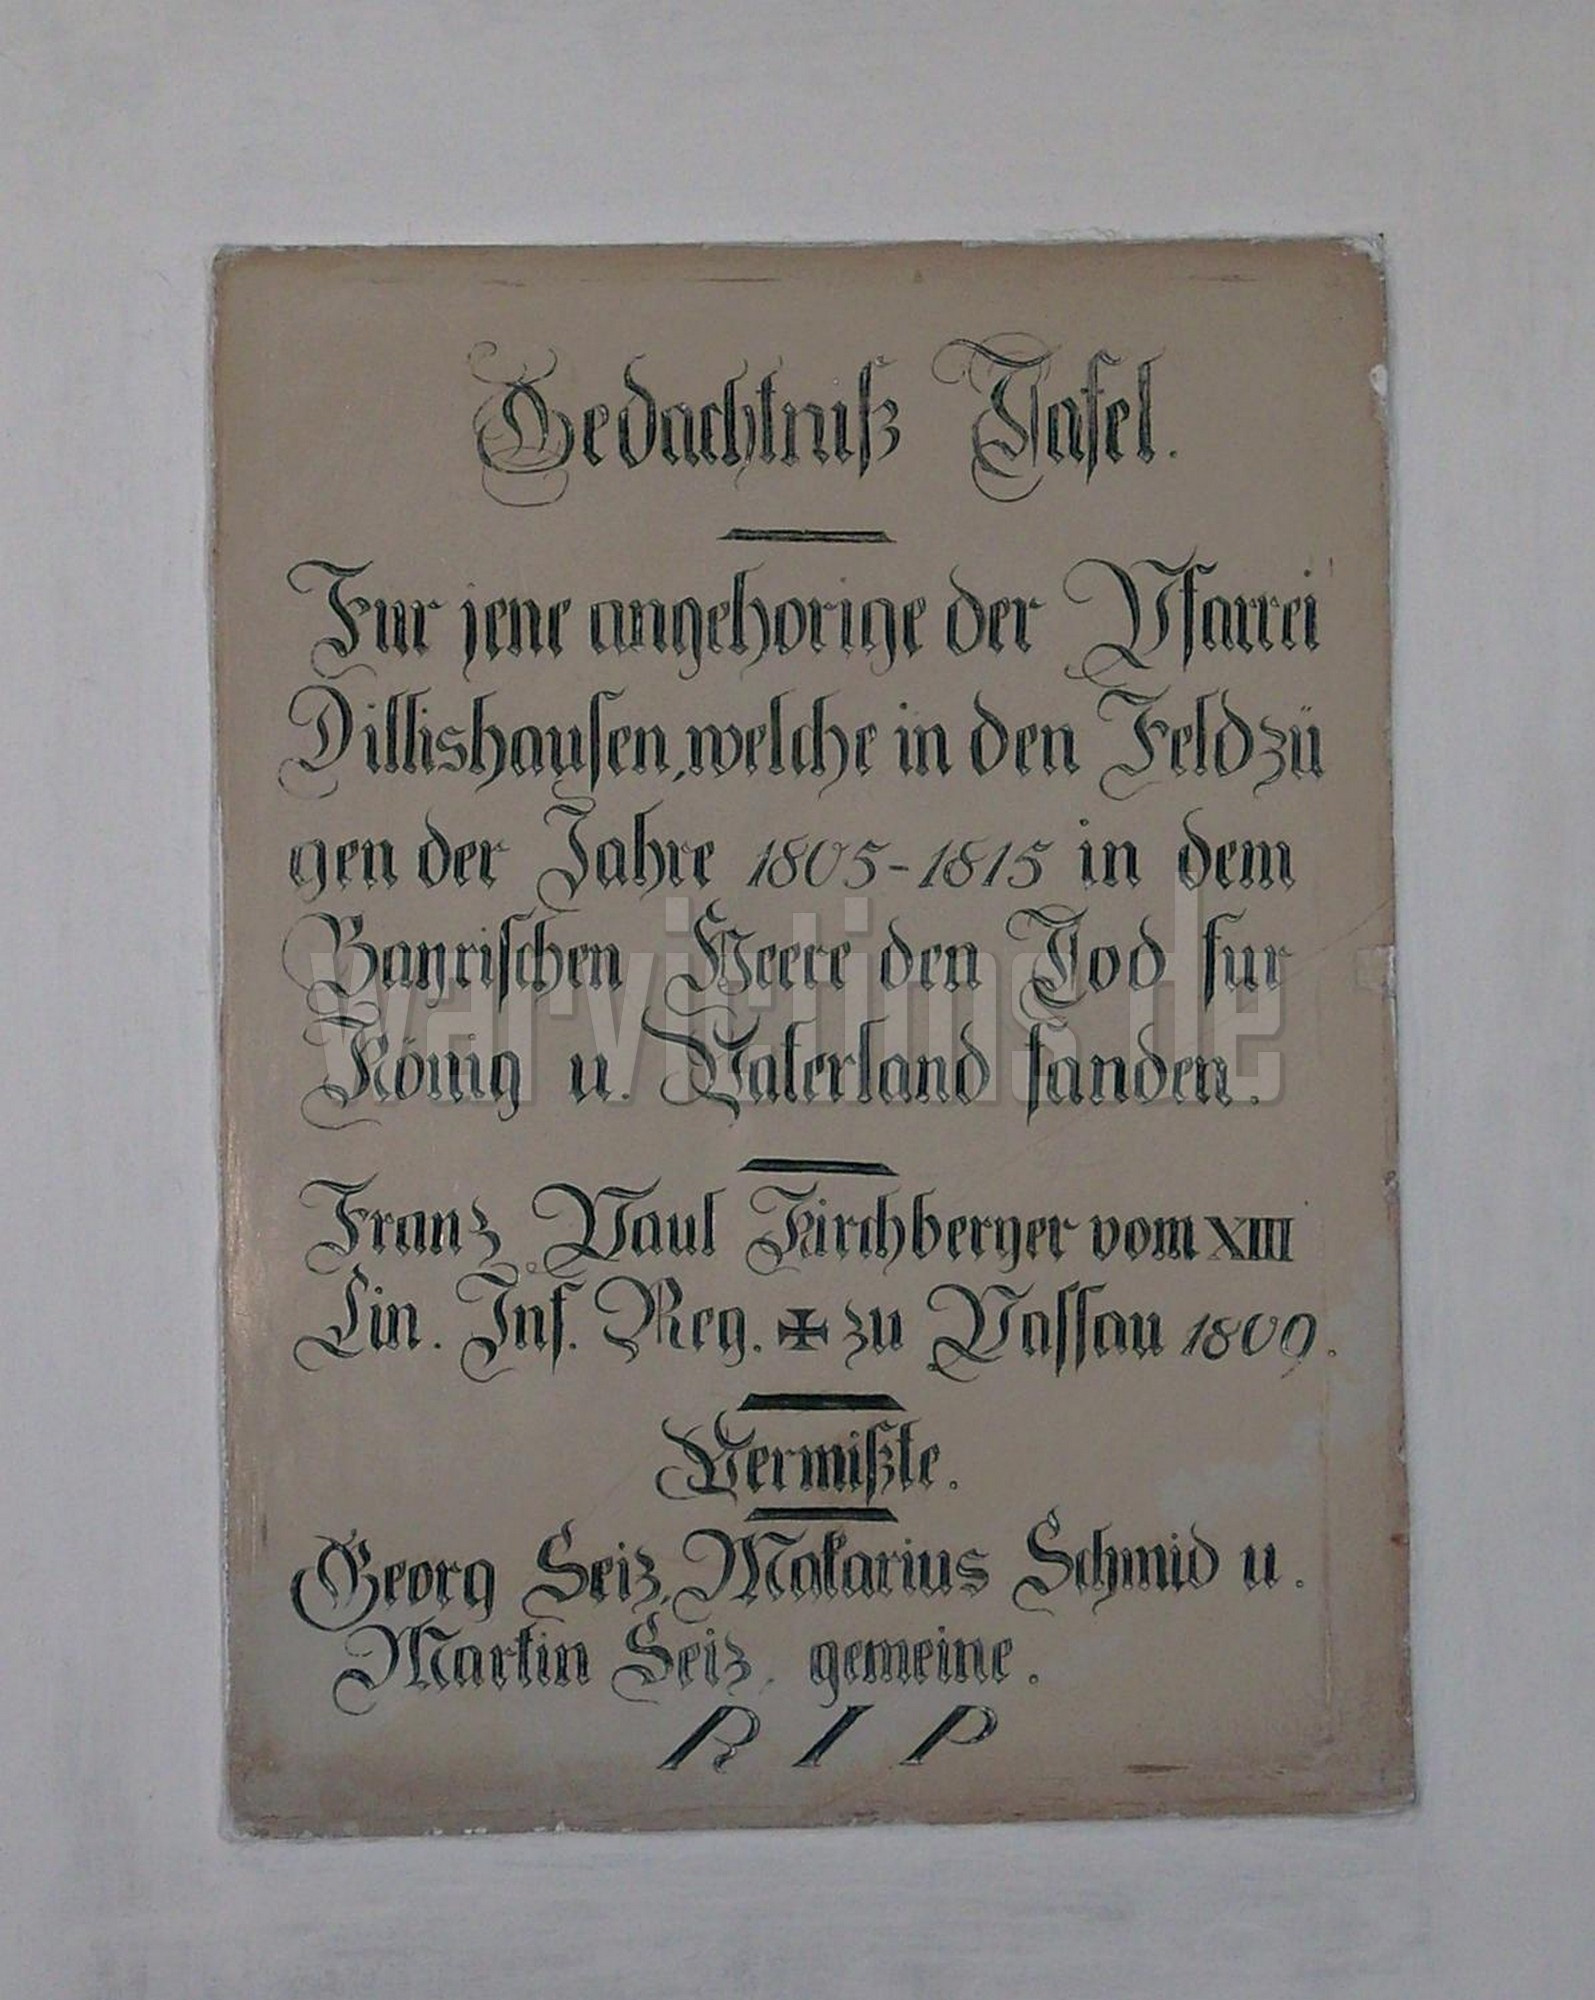 Gedachtniß Tafel.
Fur jene angehorige der Pfarrei
Dillishausen, welche in den Feldzü
gen der Jahre 1805-1815 in dem
Bayrischen Heere den Tod fur
König u. Vaterland fanden.
warvictims.de
Franz Paul Kirchberger vom XIII
Lin. Inf. Reg. ✠ zu Passau 1809.
Vermißte.
Georg Seiz, Makarius Schmid u.
Martin Seiz, gemeine.
R I P